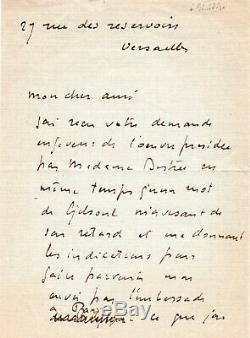 27 rue des reservoirs
Versailles
mon cher ami
j'ai reçu votre demande
en faveur de l'œuvre présidée
par Madame Destrée en
même temps qu'un mot
de m'avisant de
son retard et me donnant
les indications pour
faire parvenir mon
envoi par l'ambassade
à Paris
ce que j'ai